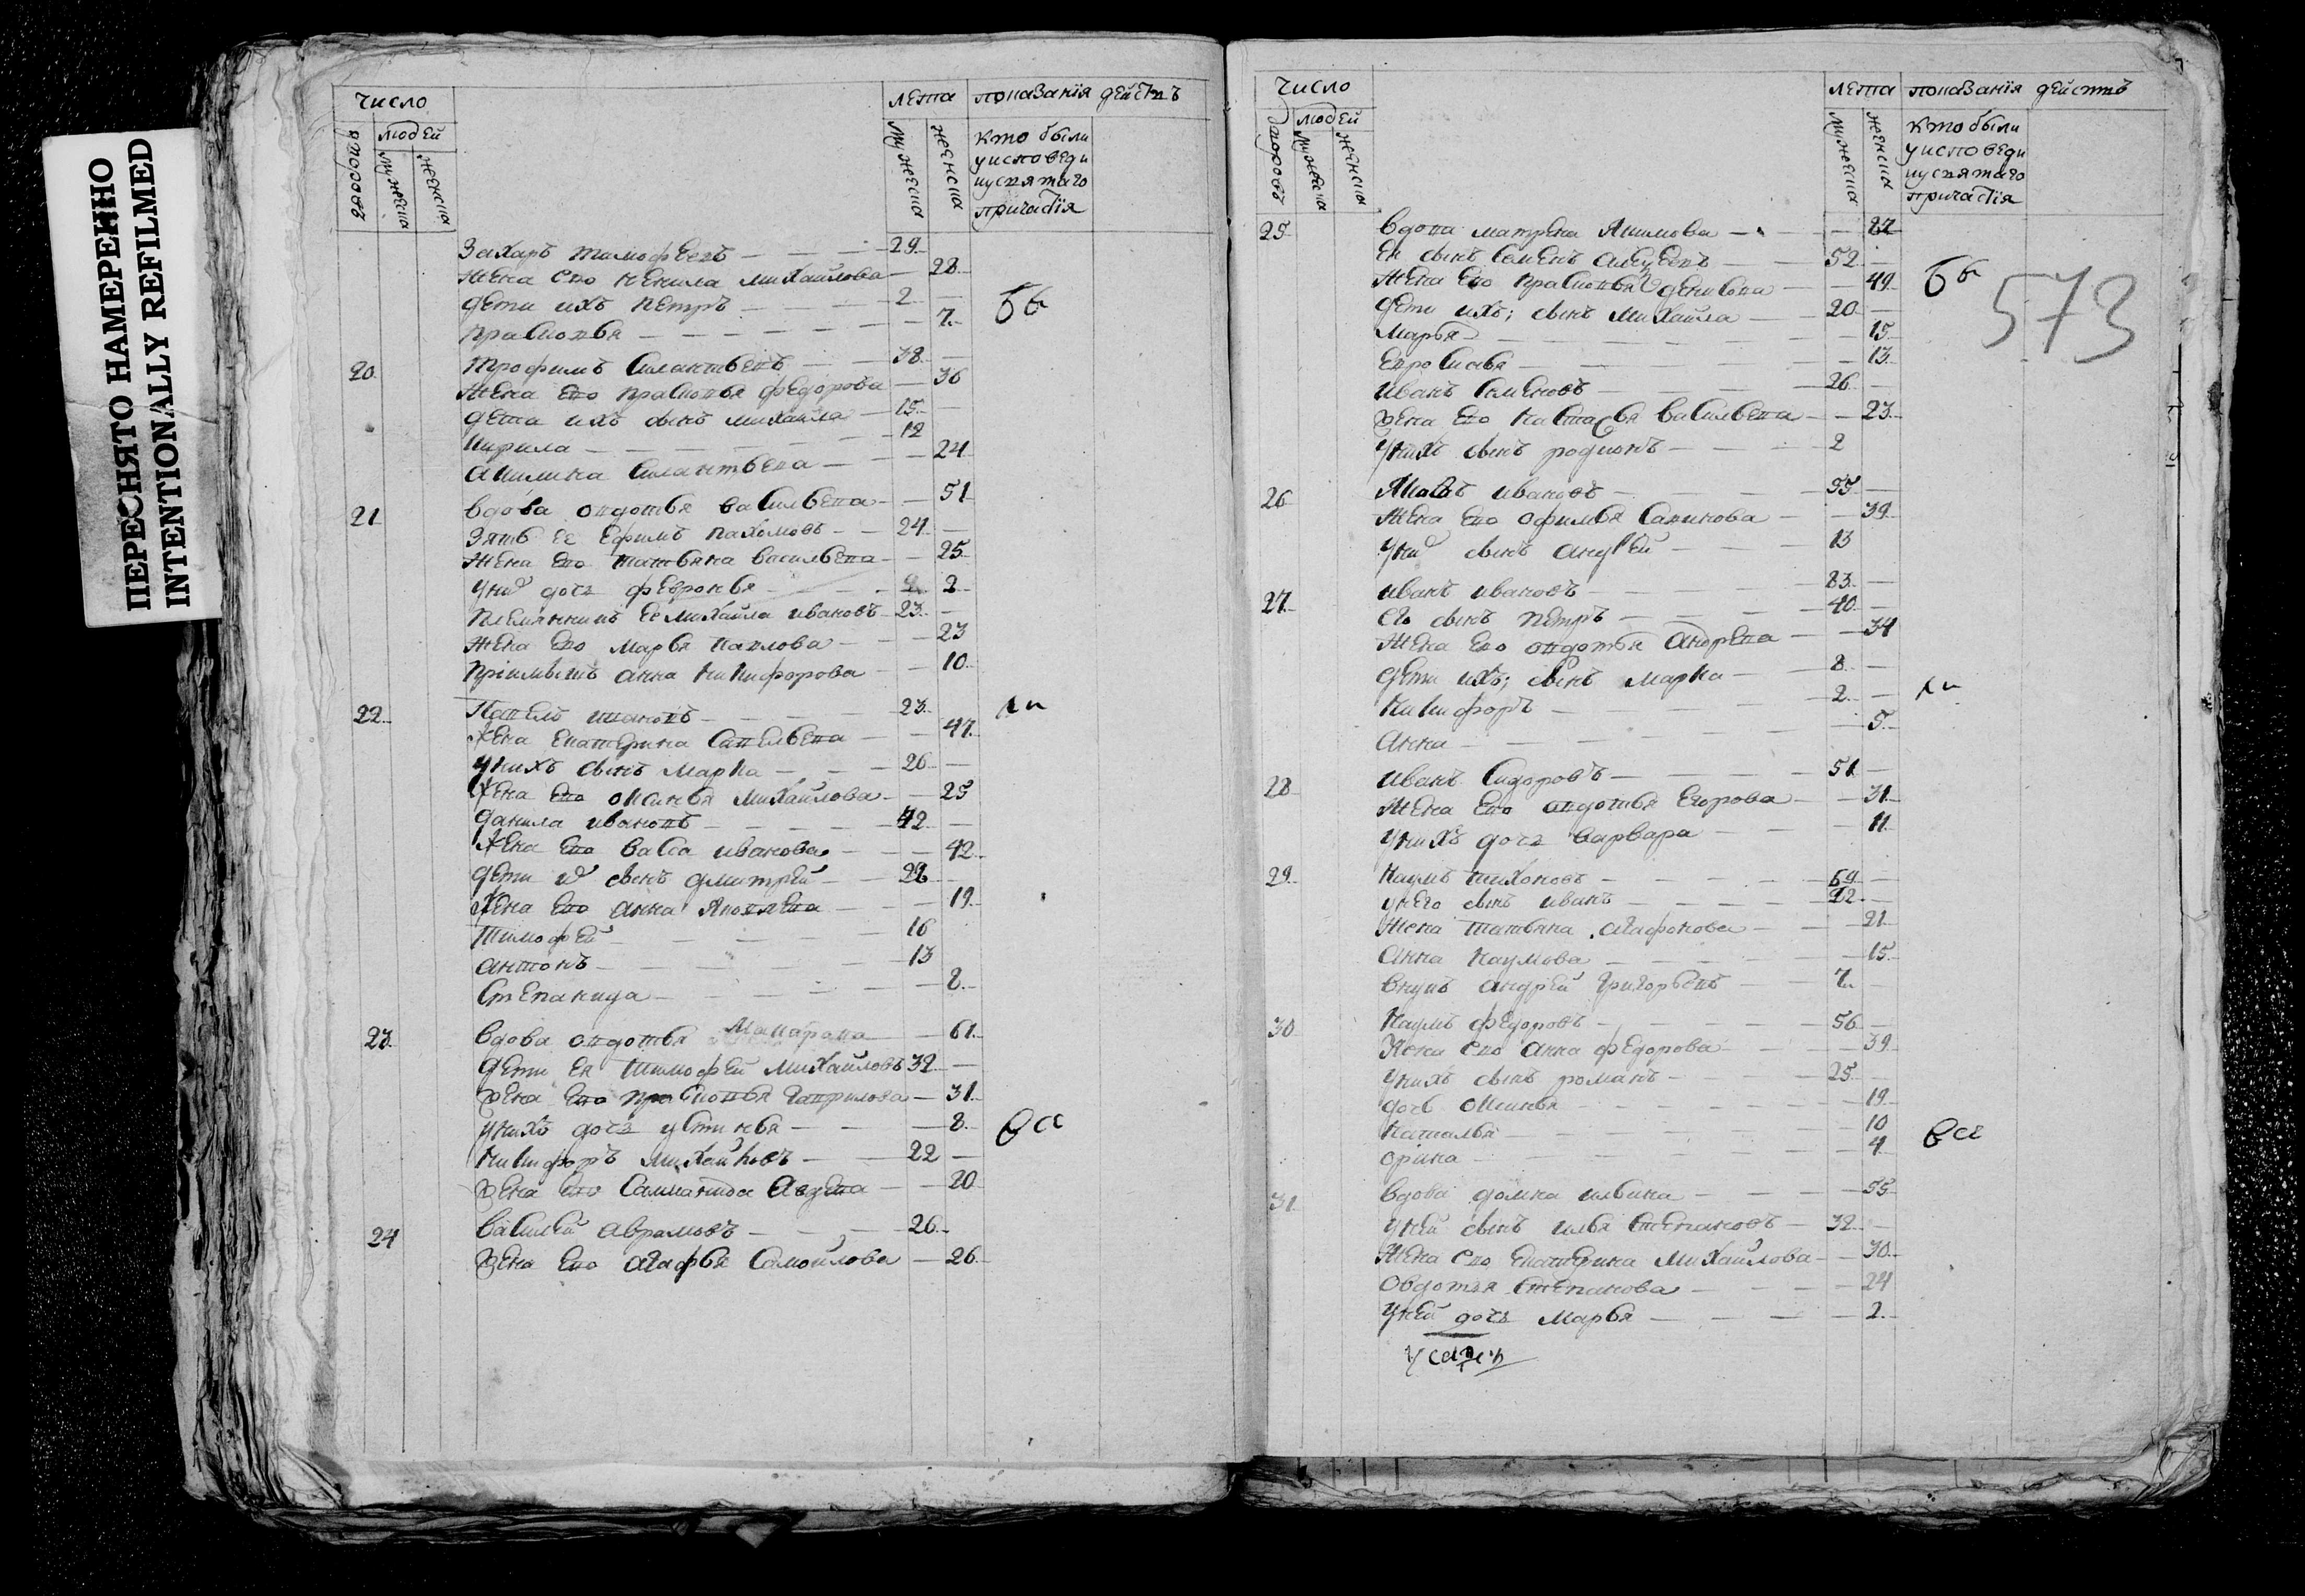 ПЕРЕСНЯТО НАМЕРЕННО
INTENTIONALLY REFILMED
число
дворовъ
людей
мужеска
женска
лета
мужеска
женска
показанїя действъ
кто были
у исповеди
и у святаго
причастїя
Захаръ тимофеевъ 29
жена его ненила михайлова 28
дети ихъ петръ 2
прасковья 7
бы
20 трофимъ силантьевъ 38
жена его прасковья федорова 36
дета ихъ сынъ михайла 15
кирила 12
акилина силантьева 24
21 вдова овдотья васильева 51
зять ее ефимъ пахомовъ 24
жена его татьяна васильева 25
у ни дочь февронья 2
племянникъ ее михайла ивановъ 23
жена его марья павлова 23
прїимышъ анна никифорова 10
22 павелъ ивановъ 23
ли
жена екатерина савельева 47
у нихъ сынъ марка 26
жена его оксинья михайлова 25
данила ивановъ 42
жена его васса иванова 42
дети и сынъ дмитрей 22
жена его анна яковлева 19
тимофей 16
антонъ 13
степанида 8
23 вдова овдотья макарова 61
дети ея тимофей михайловъ 32
жена его прасковья гаврилова 31
у нихъ дочь устинья 8
вси
никифоръ михайловъ 22
жена его авдева 20
24 василей аврамовъ 26
жена его агафья самойлова 26
число
дворовъ
людей
мужеска
женска
лета
мужеска
женска
показанїя действъ
кто были
у исповеди
и у святаго
причастїя
573
25 вдова матрена якимова
ея сынъ семенъ 52
жена его прасковья денисова 49
бы
дети ихъ; сынъ михайла 20
марья 15
евросинья 13
иванъ семеновъ 26
жена его настасья васильева 23
у нихъ сынъ родионъ 2
26 яковъ ивановъ 55
жена его офимья савинова 39
у ни сынъ андрей 13
27 иванъ ивановъ 83
его сынъ петръ 40
жена его овдотья андрева 34
дети ихъ; сынъ марка 8
никифоръ 2
ли
анна 5
28 иванъ сидоровъ 51
жена его овдотья егорова 31
у нихъ дочь варвара 11
29 наумъ тихоновъ 69
у него сынъ иванъ 22
жена татьяна агафонова 21
анна наумова 15
внукъ андрей григорьевъ 7
30 наумъ федоровъ 56
жена его анна федорова 39
у нихъ сынъ романъ 25
дочь оксинья 19
наталья 10
орина 4
вси
31 вдова домна ильина 55
у ней сынъ илья степановъ 32
жена его екатерина михайлова 30
овдотья степанова 24
у ней дочь марья 2